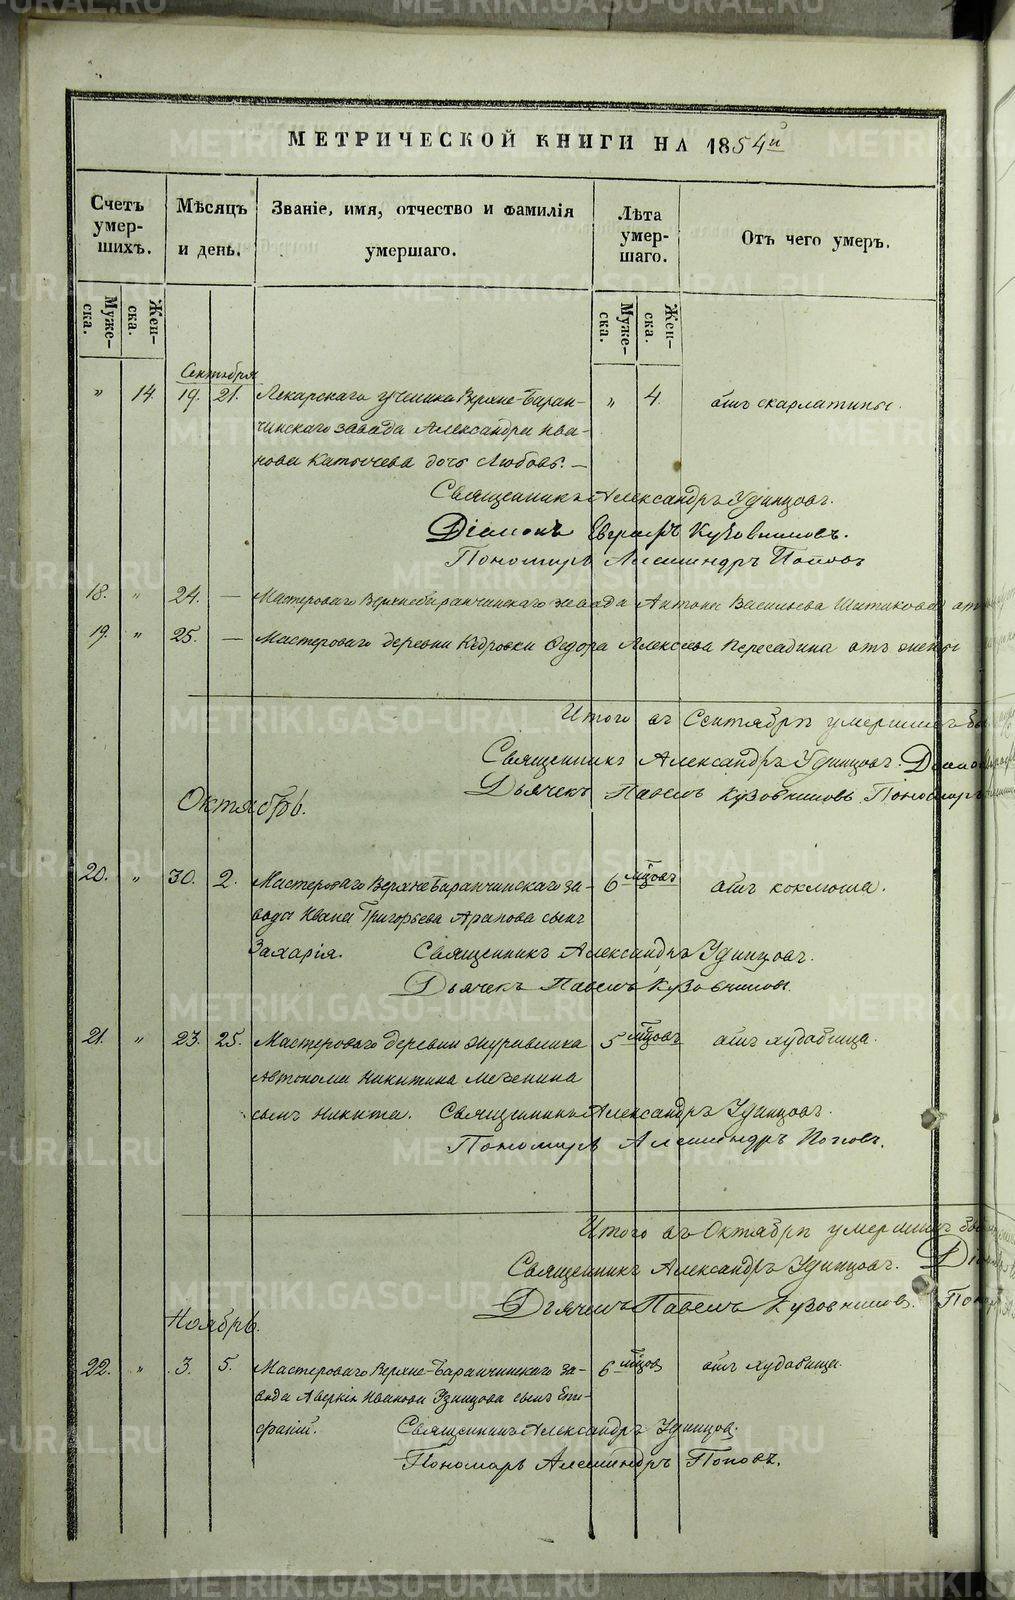 МЕТРИЧЕСКОЙ КНИГИ НА 1854й
Счетъ умер- шихъ.
Мѣсяцъ и день.
Званіе, имя, отчество и фамилія умершаго.
Лѣта умер- шаго.
Отъ чего умеръ.
Муже- ска. Жен- ска. Муже- ска. Жен- ска.
Сентября
" 14. 19. 21. Лекарскаго ученика Верхне-Баран- " 4. отъ скарлатины.
чинскаго завода Александра Ива-
нова дочь Любовь. —
Священникъ Александръ Удинцовъ.
Діаконъ Евграфъ Кузовниковъ.
Пономарь Александръ Поповъ
18. " 24. — Мастероваго Верхнебаранчинскаго завода Антона Васильева
19. " 25. — Мастероваго деревни Кедровки Федора Алексеева Пересадина отъ жены
Итого въ Сентябрѣ умершихъ
Священникъ Александръ Удинцовъ.
Дьячекъ Павелъ Кузовниковъ. Пономарь
Октябрь.
20. " 30. 2. Мастероваго Верхнебаранчинскаго за- 6 мцовъ отъ коклюша.
вода Ивана Григорьева Арапова сынъ
Захарія. Священникъ Александръ Удинцовъ.
Дьячекъ Павелъ Кузовниковъ.
21. " 23. 25. Мастероваго деревни 5 мцовъ отъ худобища.
Автонома Никитина сынъ Никита. Священникъ Александръ Удинцовъ.
Пономарь Александръ Поповъ.
Итого въ Октябрѣ умершихъ
Священникъ Александръ Удинцовъ.
Дьячекъ Павелъ Кузовниковъ.
Ноябрь.
22. " 3. 5. Мастероваго Верхне-Баранчинскаго за- 6 мцов отъ худобища.
вода Аверкія Иванова сынъ Епи-
фаній. Священникъ Александръ Удинцов.
Пономарь Александръ Поповъ.
METRIKI.GASO-URAL.RU